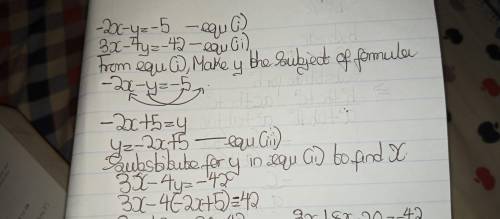 -2x-y=-5 — equ(i)
3x-4y=-42 — equ(ii)
From equ(i), Make y the subject of formular
-2x-y=-5
-2x+5=y
y=-2x+5 — equ(iii)
Substitute for y in equ(ii) to find X
3x-4y=-42
3x-4(-2x+5)=42